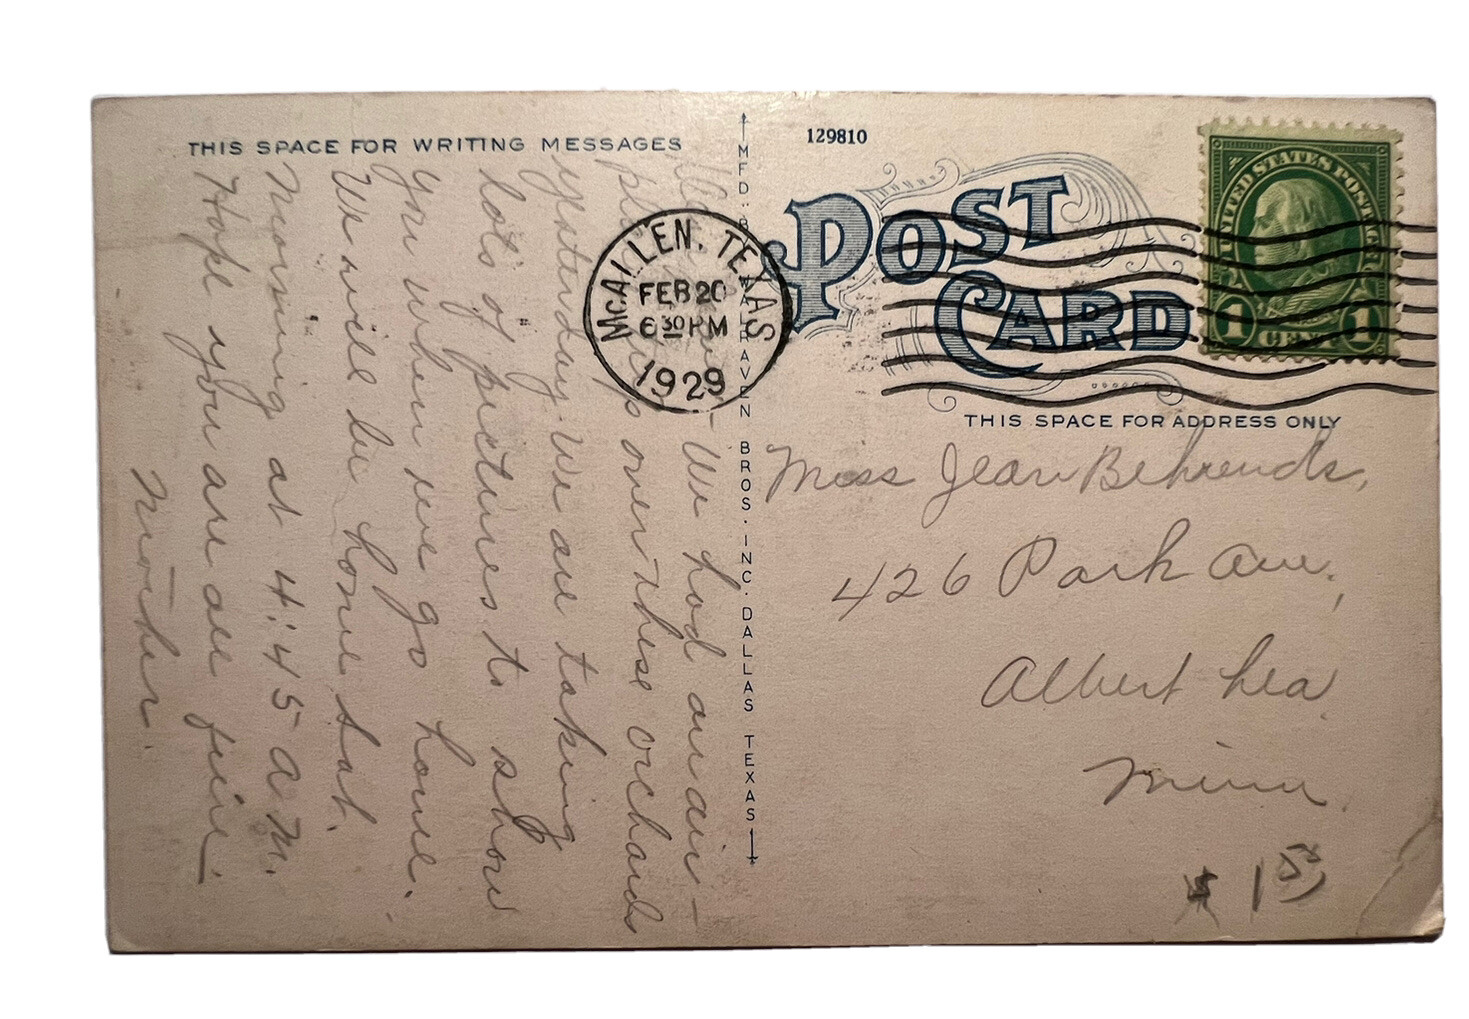 THIS SPACE FOR WRITING MESSAGES
We had an air-
plane over these orchards
yesterday. We are taking
lots of pictures to show
you when we go home.
We will be home Sat.
morning at 4:45 a.m.
Hope you are all fine.
Mother.
MFD. BY BROS. INC. DALLAS TEXAS
129810
POST
CARD
McALLEN, TEXAS
FEB 20
6 30 PM
1929
UNITED STATES POSTAGE
1 CENT 1
THIS SPACE FOR ADDRESS ONLY
Miss Jean Behrends,
426 Park Ave,
Albert Lea
Minn.
$ 1 50